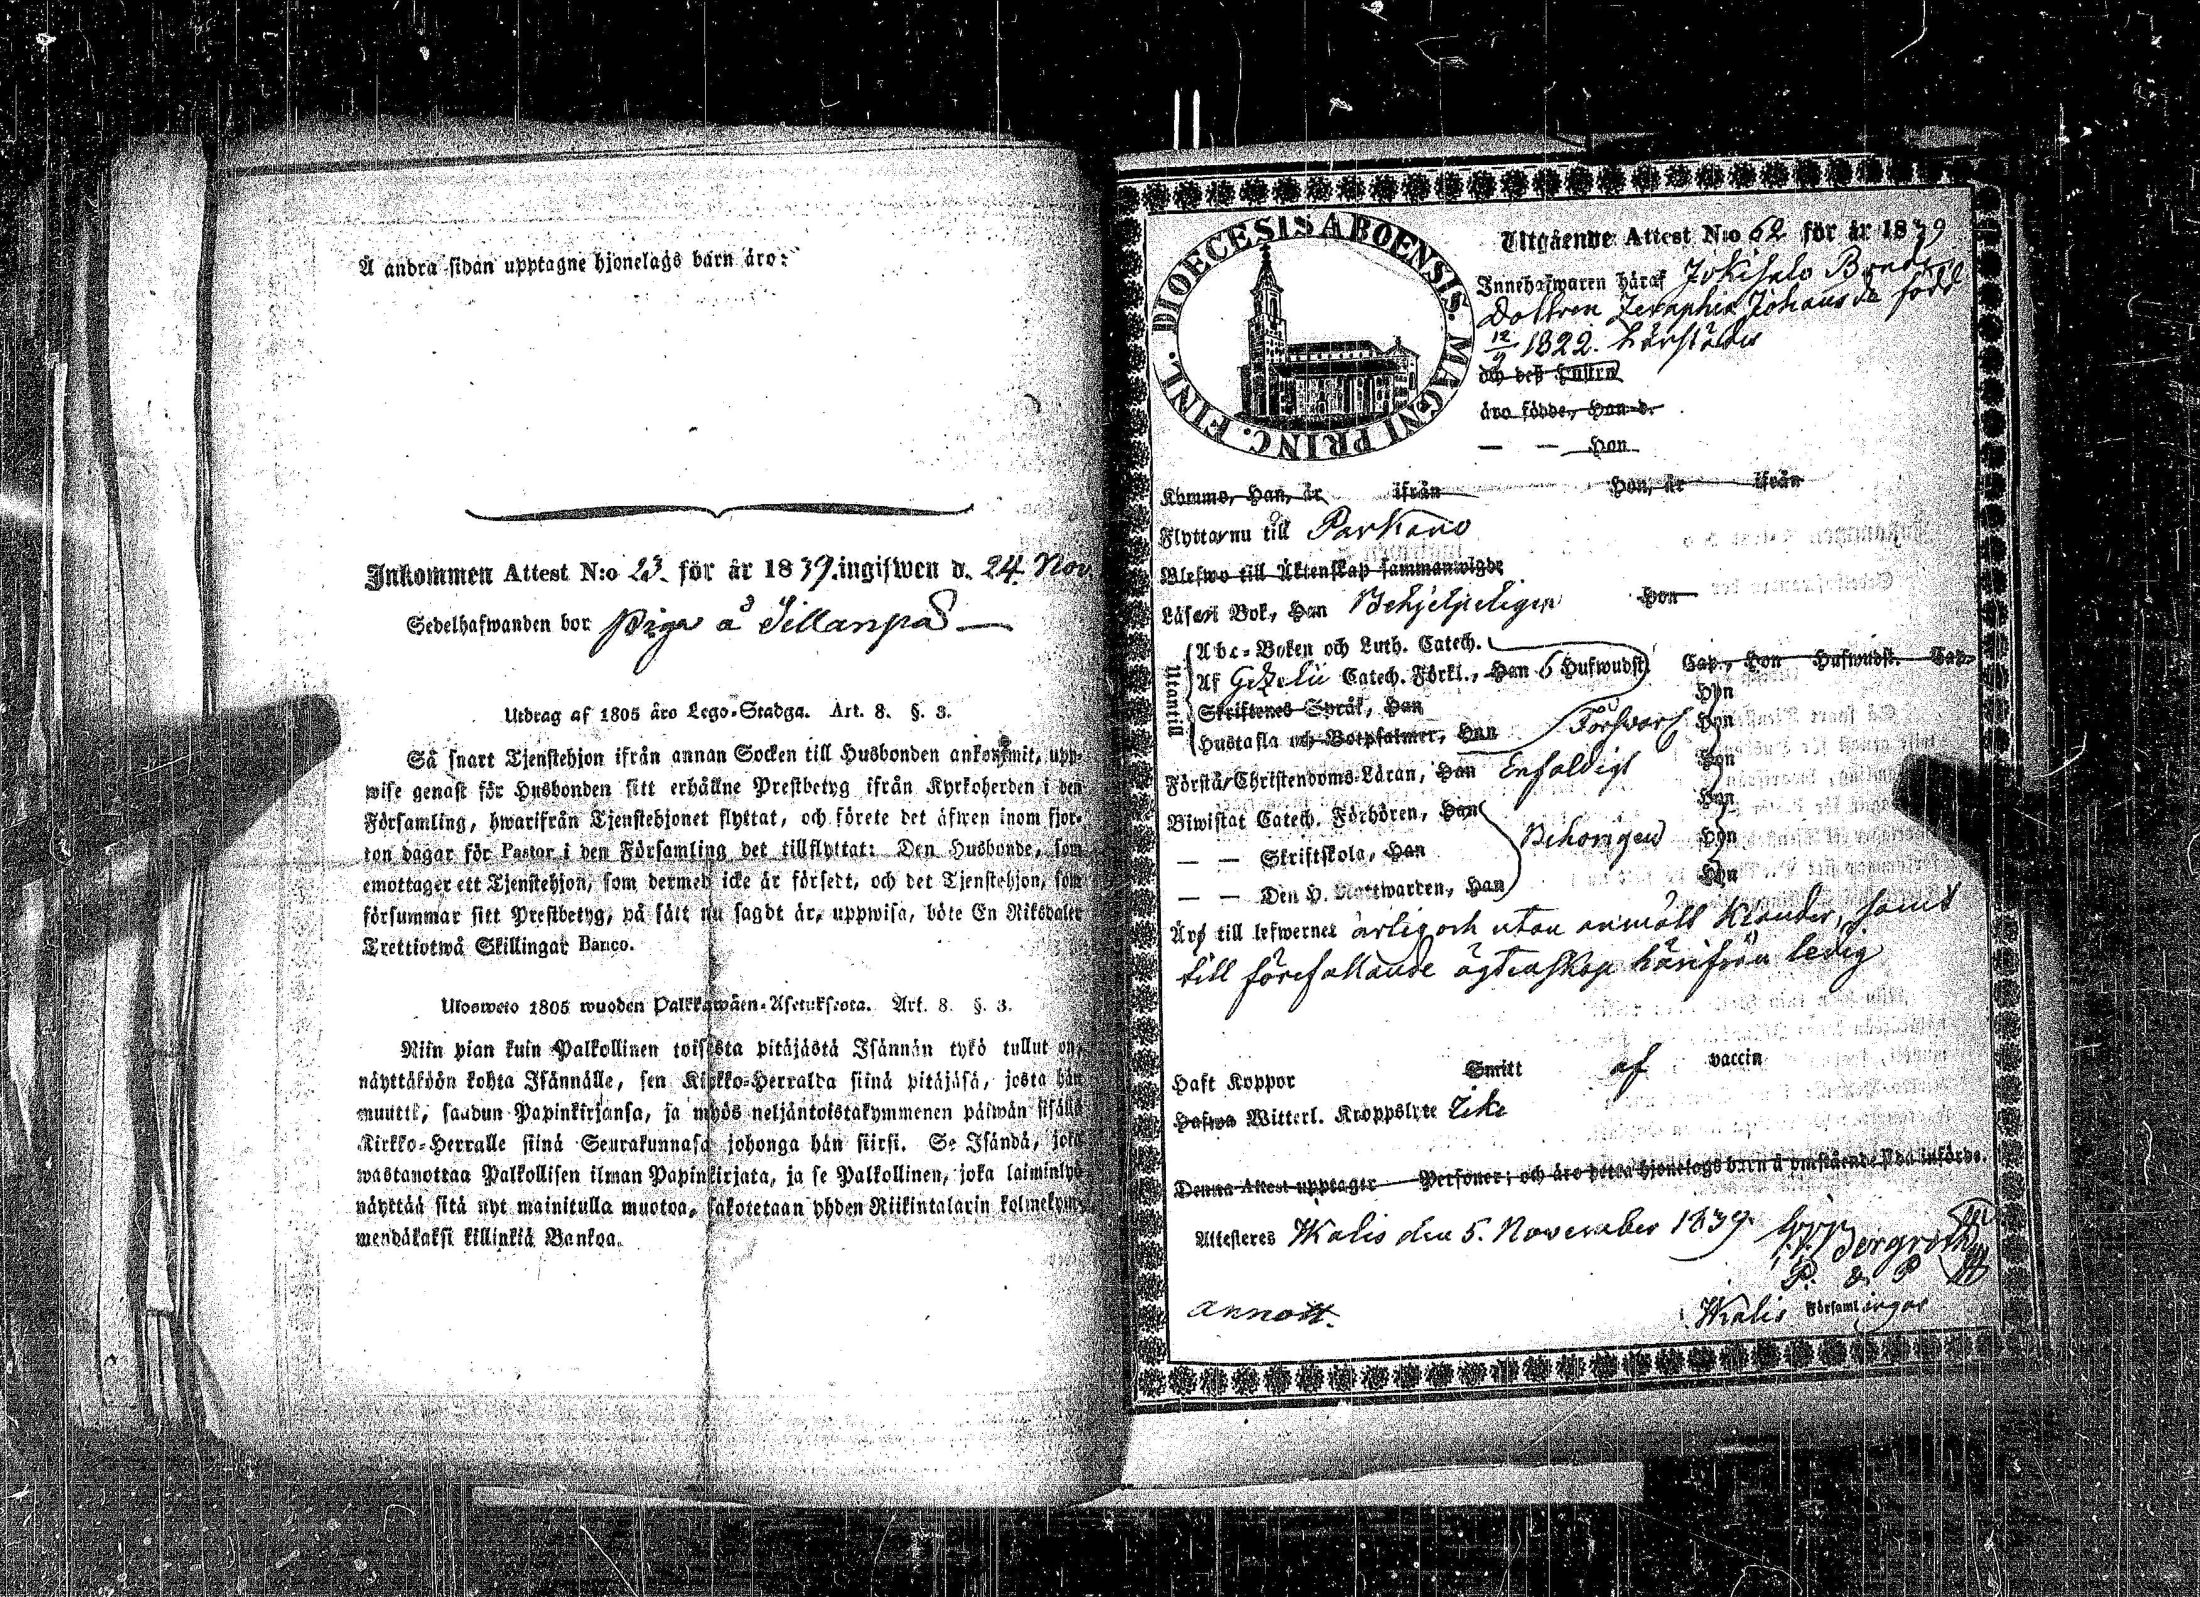 Å andra sidan upptagne hjonelags barn äro:
Inkommen Attest N:o 23. för år 1839. ingifwen d. 24. Nov.
Sedelhafwanden bor Piga å Sillanpää
Utdrag af 1805 åro Lego-Stadga. Art. 8. §. 3.
Så snart Tjenstehjon ifrån annan Socken till Husbonden ankommit, upp-
wise genast för Husbonden sitt erhållne Prestbetyg ifrån Kyrkoherden i den
Församling, hwarifrån Tjenstehjonet flyttat, och förete det äfwen inom fjor-
ton dagar för Pastor i den Församling det tillflyttat: Den Husbonde, som
emottager ett Tjenstehjon, som dermed icke är försedt, och det Tjenstehjon, som
försummar sitt Prestbetyg, på sätt nu sagdt är, uppwisa, böte En Riksdaler
Trettiotwå Skillingar Banco.
Uloswето 1805 wuoden Palkkawäen-Asetuksesta. Art. 8. §. 3.
Niin pian kuin Palkollinen toisesta pitäjästä Isännän tykö tullut on,
näyttäköön kohta Isännälle, sen Kirkko-Herralda siinä pitäjäsä, josta hän
muutti, saadun Papinkirjansa, ja myös neljäntoistakymmenen päiwän sisällä
Kirkko-Herralle siinä Seurakunnasa johonga hän siirsi. Se Isändä, joka
wastanottaa Palkollisen ilman Papinkirjata, ja se Palkollinen, joka laiminlyö
näyttää sitä nyt mainitulla muotoa, sakotetaan yhden Riikintalarin kolmekym-
mendäkaksi killinkiä Bankoa.
DIOECESIS ABOENSIS. MAGNI PRINC. FINL.
Utgående Attest N:o 62 för år 1839
Innehafwaren häraf Jokisalo Bonde
Dottren Seraphia Johansd:r född
12/9 1822. härstädes
och dess Hustru
äro födde, Han d.
— — Hon
Komme, Han, är ifrån Hon, är ifrån
Flyttar nu till Parkano
Blefwo till Äktenskap sammanwigde
Läser i Bok, Han Behjelpeligen Hon
Utantill
Abc-Boken och Luth. Catech.
Af Gezelii Catech. Förkl., Han 6 Hufwudst. Cap., Hon Hufwudst. Cap.
Skriftenes Språk, Han Hon
Hustafla och Botpsalmer, Han Försvarl. Hon
Förstå Christendoms Läran, Han Enfaldigt Hon
Biwistat Catech. Förhören, Han Hon
— — Skriftskola, Han Behörigen Hon
— — Den H. Nattwarden, Han Hon
Är till lefwernet ärlig och utan anmält klander, samt
till förefallande ägtenskap härifrån ledig
Haft Koppor Smitt af vaccin
Hafwa Witterl. Kroppslyte Icke
Denna Attest upptager Personer; och äro detta hjonelags barn å omstående sida införde.
Attesteras Ikalis den 5. November 1839. Bergroth
P. & P
annott. Ikalis Församlingar